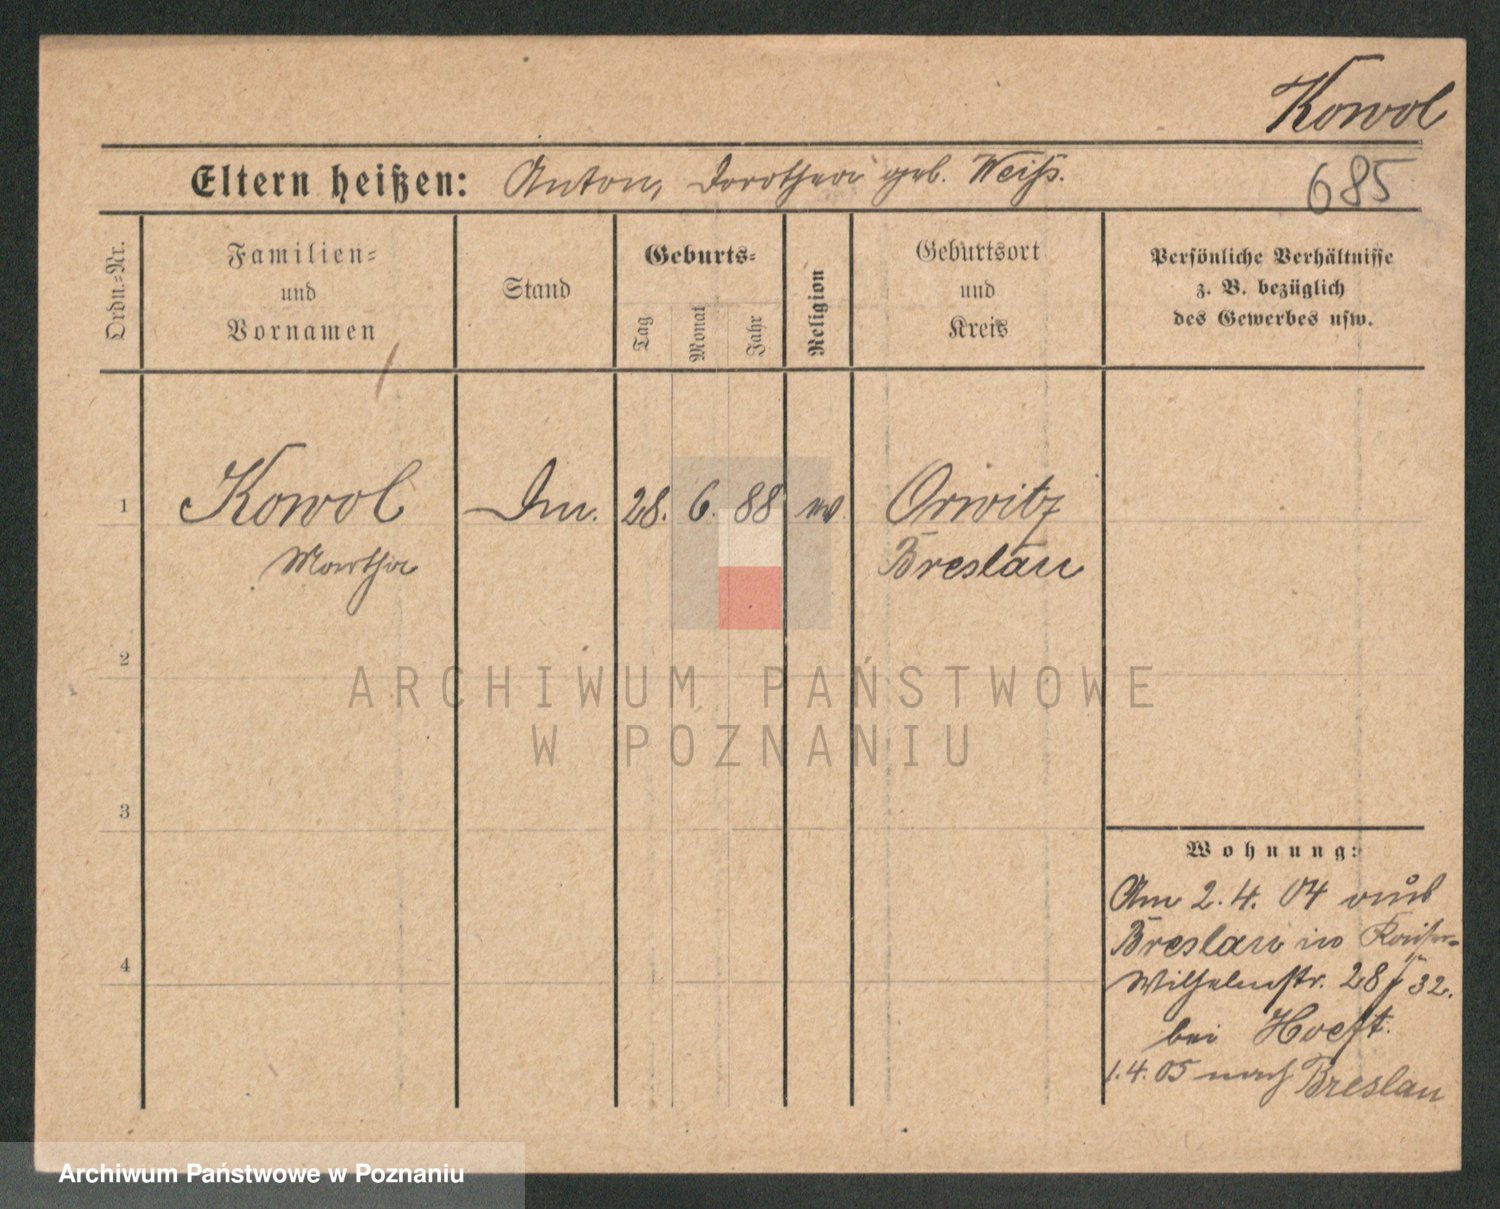 Kowol
685
Eltern heißen: Anton, Dorothea geb. Weiss.
Ordn.-Nr.
Familien-
und
Vornamen
Stand
Geburts-
Tag
Monat
Jahr
Religion
Geburtsort
und
Kreis
Persönliche Verhältnisse
z. B. bezüglich
des Gewerbes usw.
1 Kowol 28. 6. 88 ev. Orwitz
Martha Breslau
2
3
4
ARCHIWUM PAŃSTWOWE
W POZNANIU
Wohnung:
Am 2. 4. 04 aus
Breslau in Kaiser-
Wilhelmstr. 28 32.
bei Hoeft.
1. 4. 05 nach Breslau
Archiwum Państwowe w Poznaniu